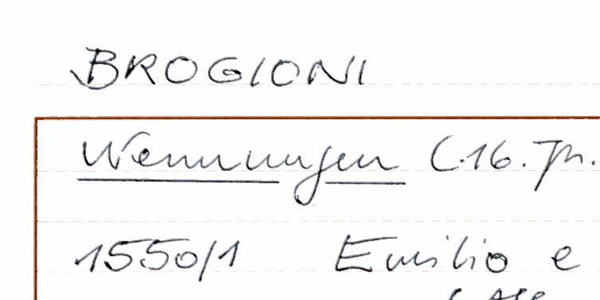 BROGIONI
Nennungen (16. Jh.
1550/1 Emilio e